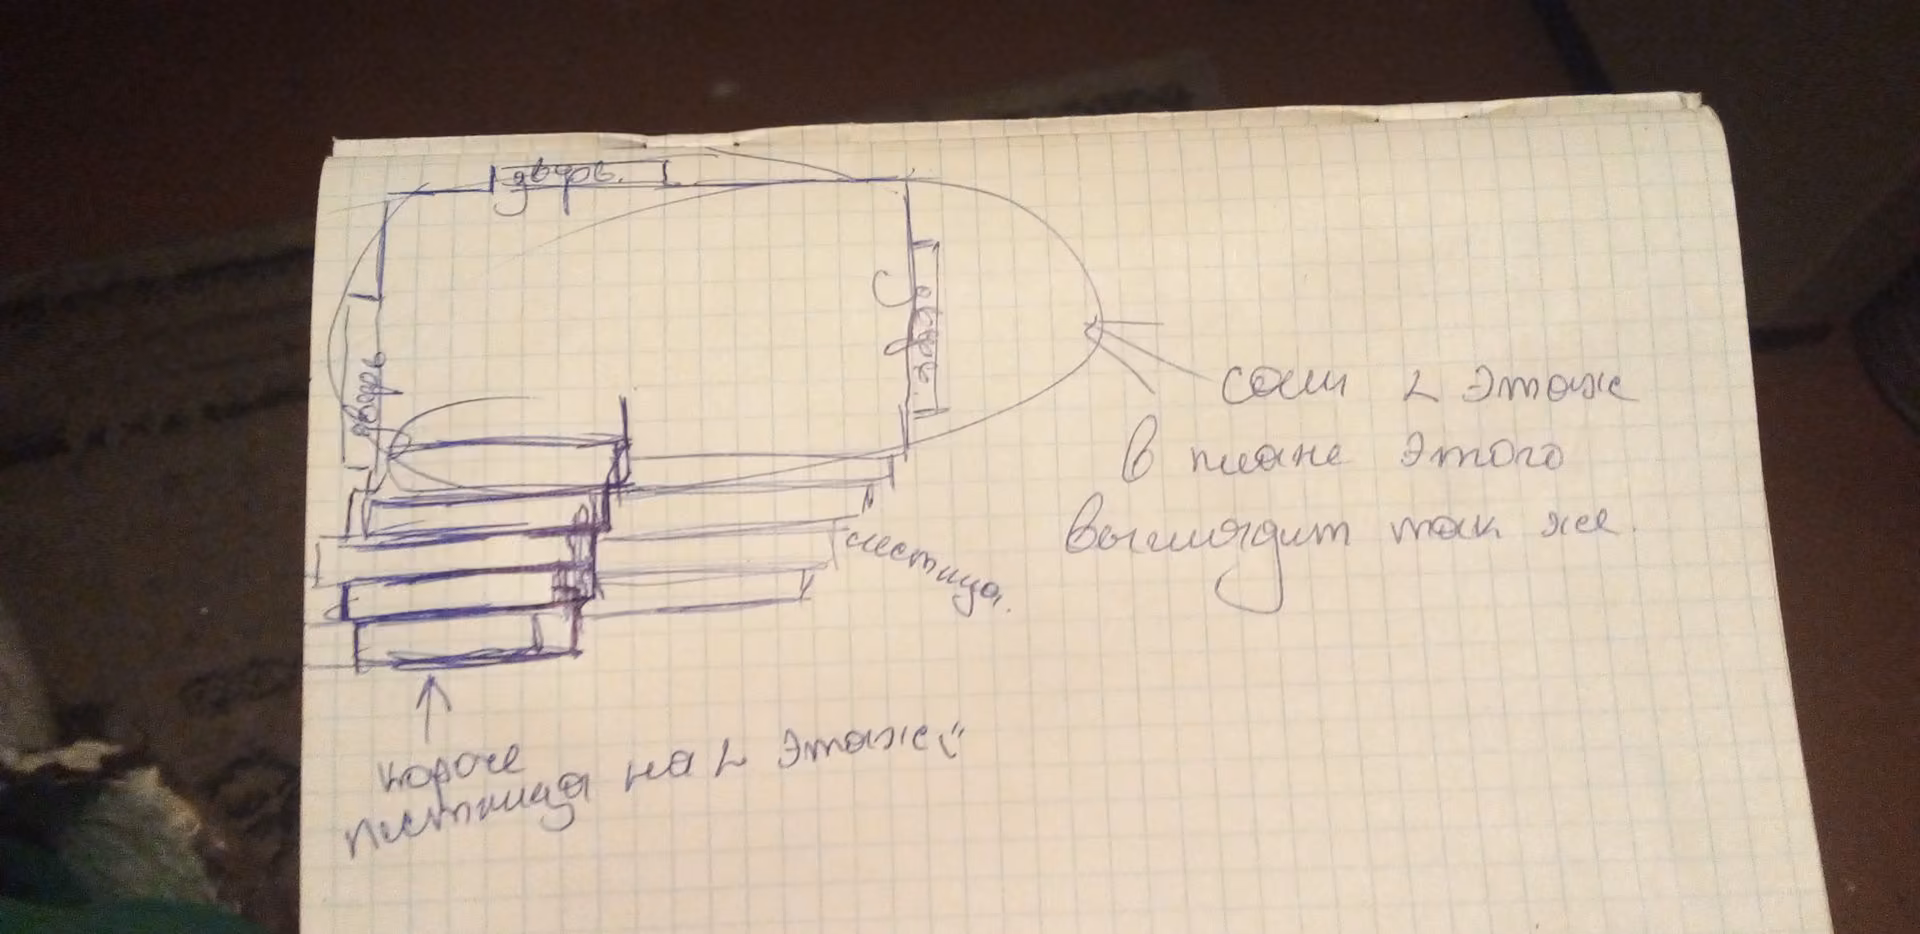 дверь.
дверь
дверь
сам 2 этаж
в плане этого
выглядит так же.
лестница.
короче
лестница на 2 этаже